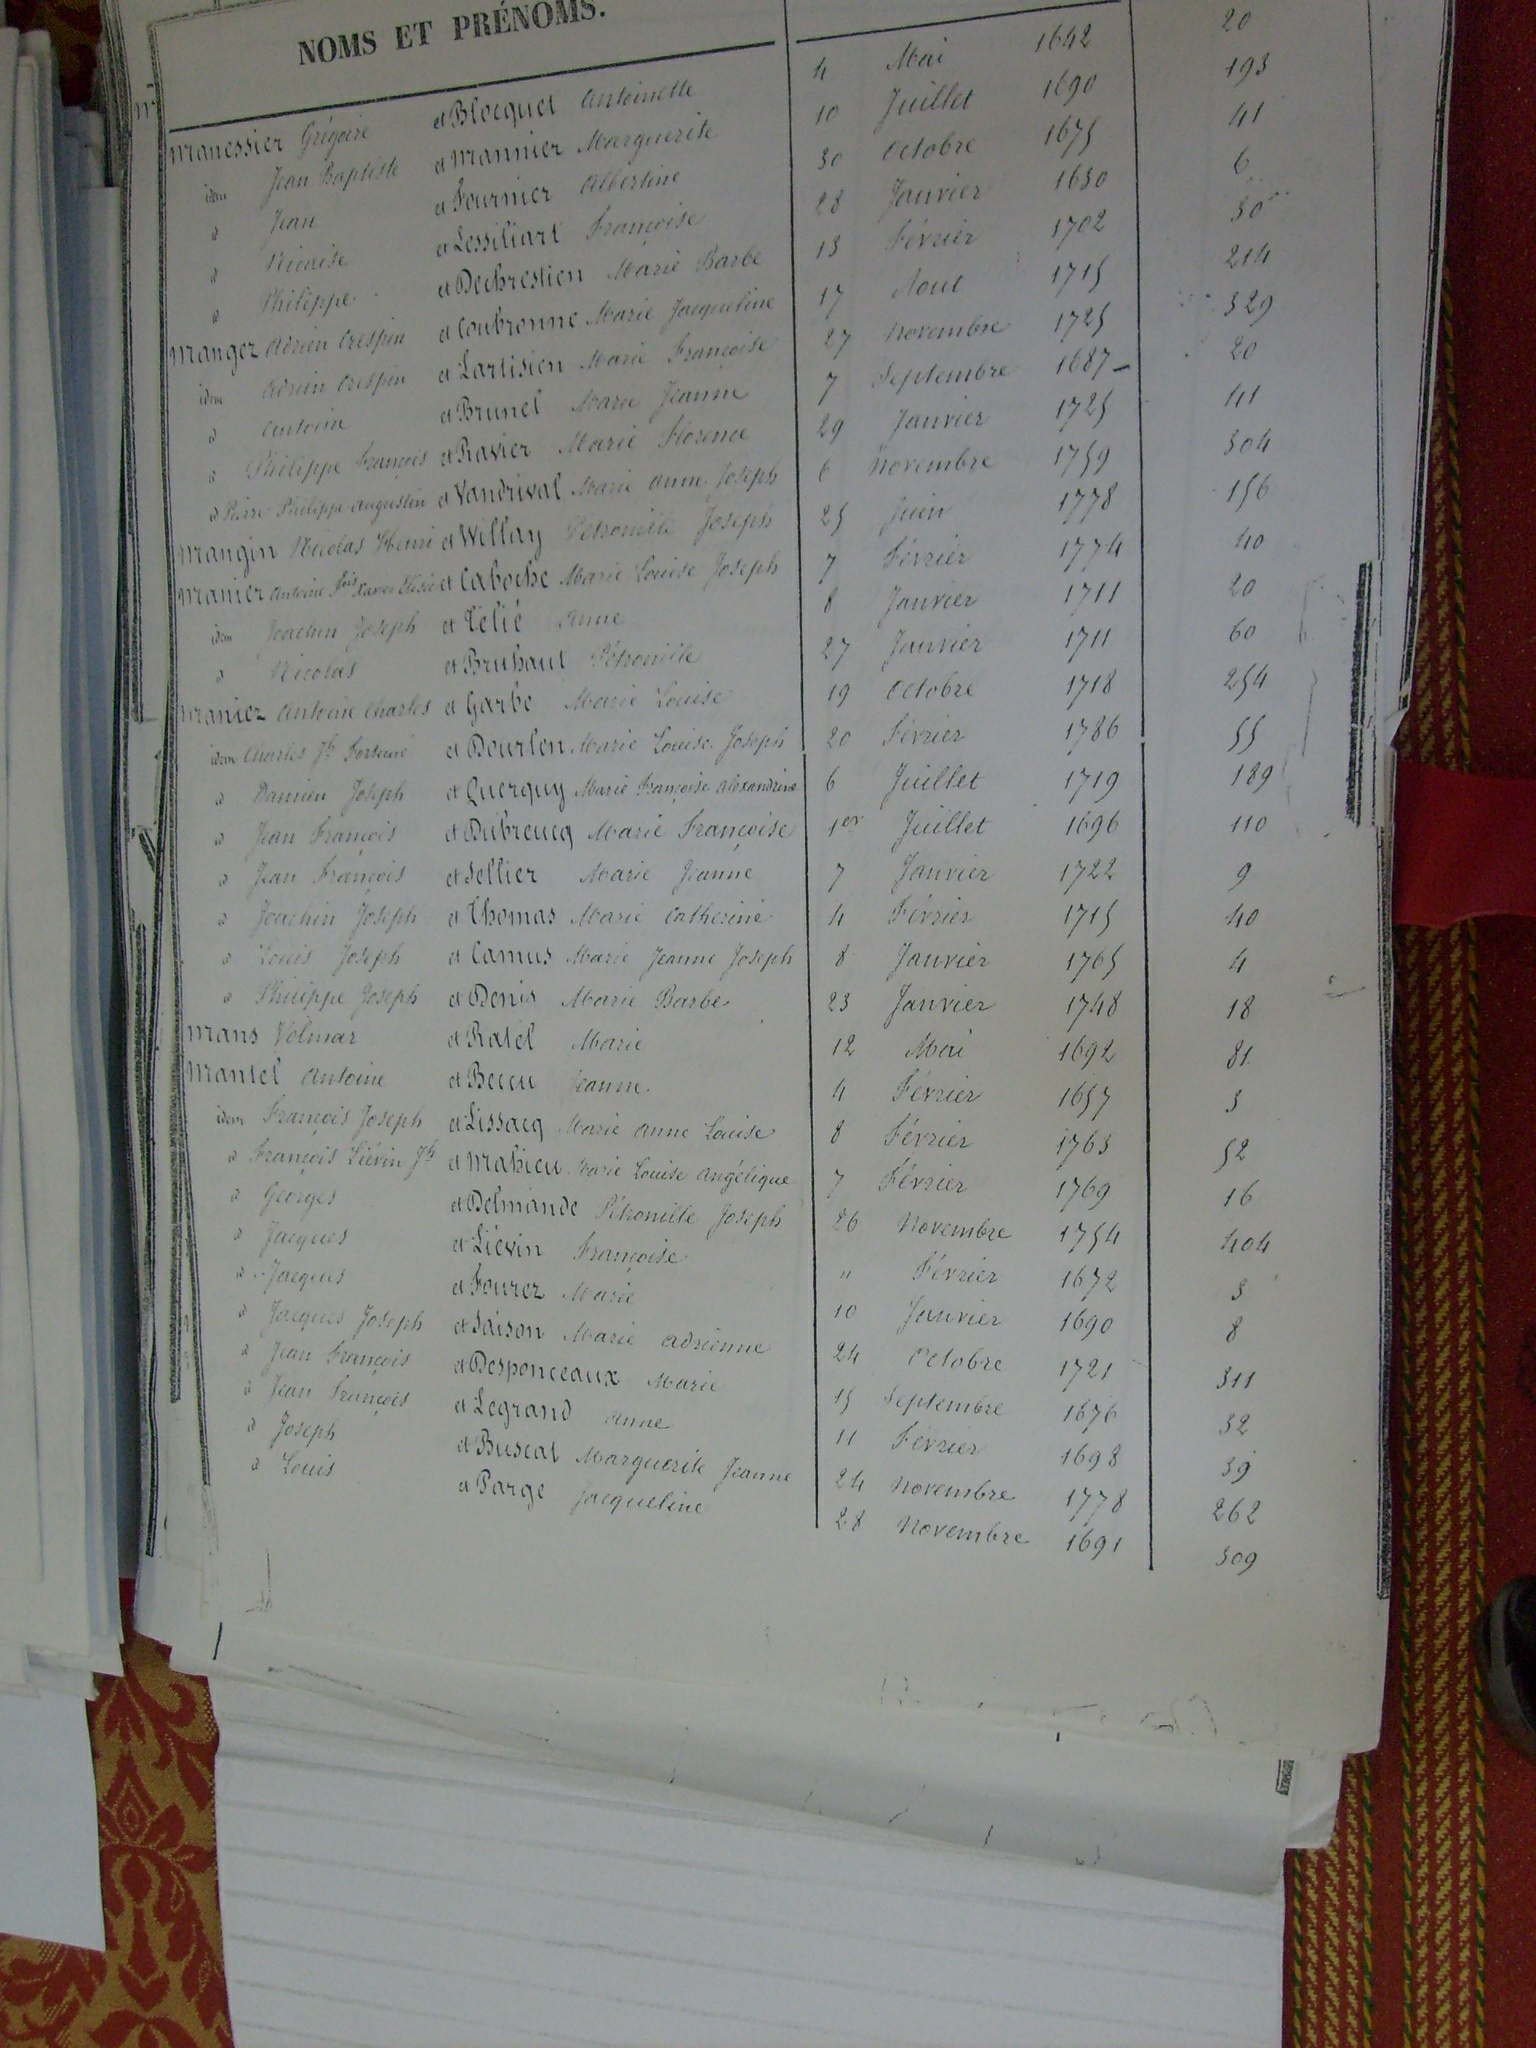 NOMS ET PRÉNOMS.
Manessier Grégoire et Blocquel Antoinette 4 Mai 1642 20
idem Jean Baptiste et Mannier Marguerite 10 Juillet 1690 193
d Jean et Fournier Albertine 30 Octobre 1675 41
d Nicaise et Lessiliart Françoise 28 Janvier 1630 6
d Philippe et Dechrestien Marie Barbe 13 Février 1702 30
Manger Adrien Crespin et Coubronne Marie Jacqueline 17 Aout 1715 214
idem Adrien Crespin et Lartisien Marie Françoise 27 Novembre 1725 329
d Antoine et Brunel Marie Jeanne 7 Septembre 1687 20
d Philippe François et Ravier Marie Florence 29 Janvier 1725 41
d Pierre Philippe Augustin et Vandrival Marie Anne Joseph 6 Novembre 1759 304
Mangin Nicolas Henri et Willay Pétronille Joseph 25 Juin 1778 156
Manier Antoine Fois Xavier Elisée et Caboche Marie Louise Joseph 7 Février 1774 40
idem Joachin Joseph et Télié Anne 8 Janvier 1711 20
d Nicolas et Bruhaut Pétronille 27 Janvier 1711 60
Maniez Antoine Charles et Garbe Marie Louise 19 Octobre 1718 254
idem Charles Jh Fortuné et Dourlen Marie Louise Joseph 20 Février 1786 55
d Damien Joseph et Querquy Marie Françoise Alexandrine 6 Juillet 1719 189
d Jean François et Dubreucq Marie Françoise 1er Juillet 1696 110
d Jean François et Sellier Marie Jeanne 7 Janvier 1722 9
d Joachin Joseph et Thomas Marie Catherine 4 Février 1715 40
d Louis Joseph et Camus Marie Jeanne Joseph 8 Janvier 1765 4
d Philippe Joseph et Denis Marie Barbe 23 Janvier 1748 18
Mans Volmar et Ratel Marie 12 Mai 1692 81
Mantel Antoine et Beccu Jeanne 4 Février 1657 3
idem François Joseph et Lissacq Marie Anne Louise 8 Février 1763 52
d François Liévin Jh et Mahieu Marie Louise Angélique 7 Février 1769 16
d Georges et Delmande Pétronille Joseph 26 Novembre 1754 404
d Jacques et Liévin Françoise " Février 1672 3
d Jacques et Fourez Marie 10 Janvier 1690 8
d Jacques Joseph et Saison Marie Adrienne 24 Octobre 1721 311
d Jean François et Desponceaux Marie 15 Septembre 1676 32
d Jean François et Legrand Anne 11 Février 1698 39
d Joseph et Buscal Marguerite Jeanne 24 Novembre 1778 262
d Louis et Parge Jacqueline 28 Novembre 1691 309